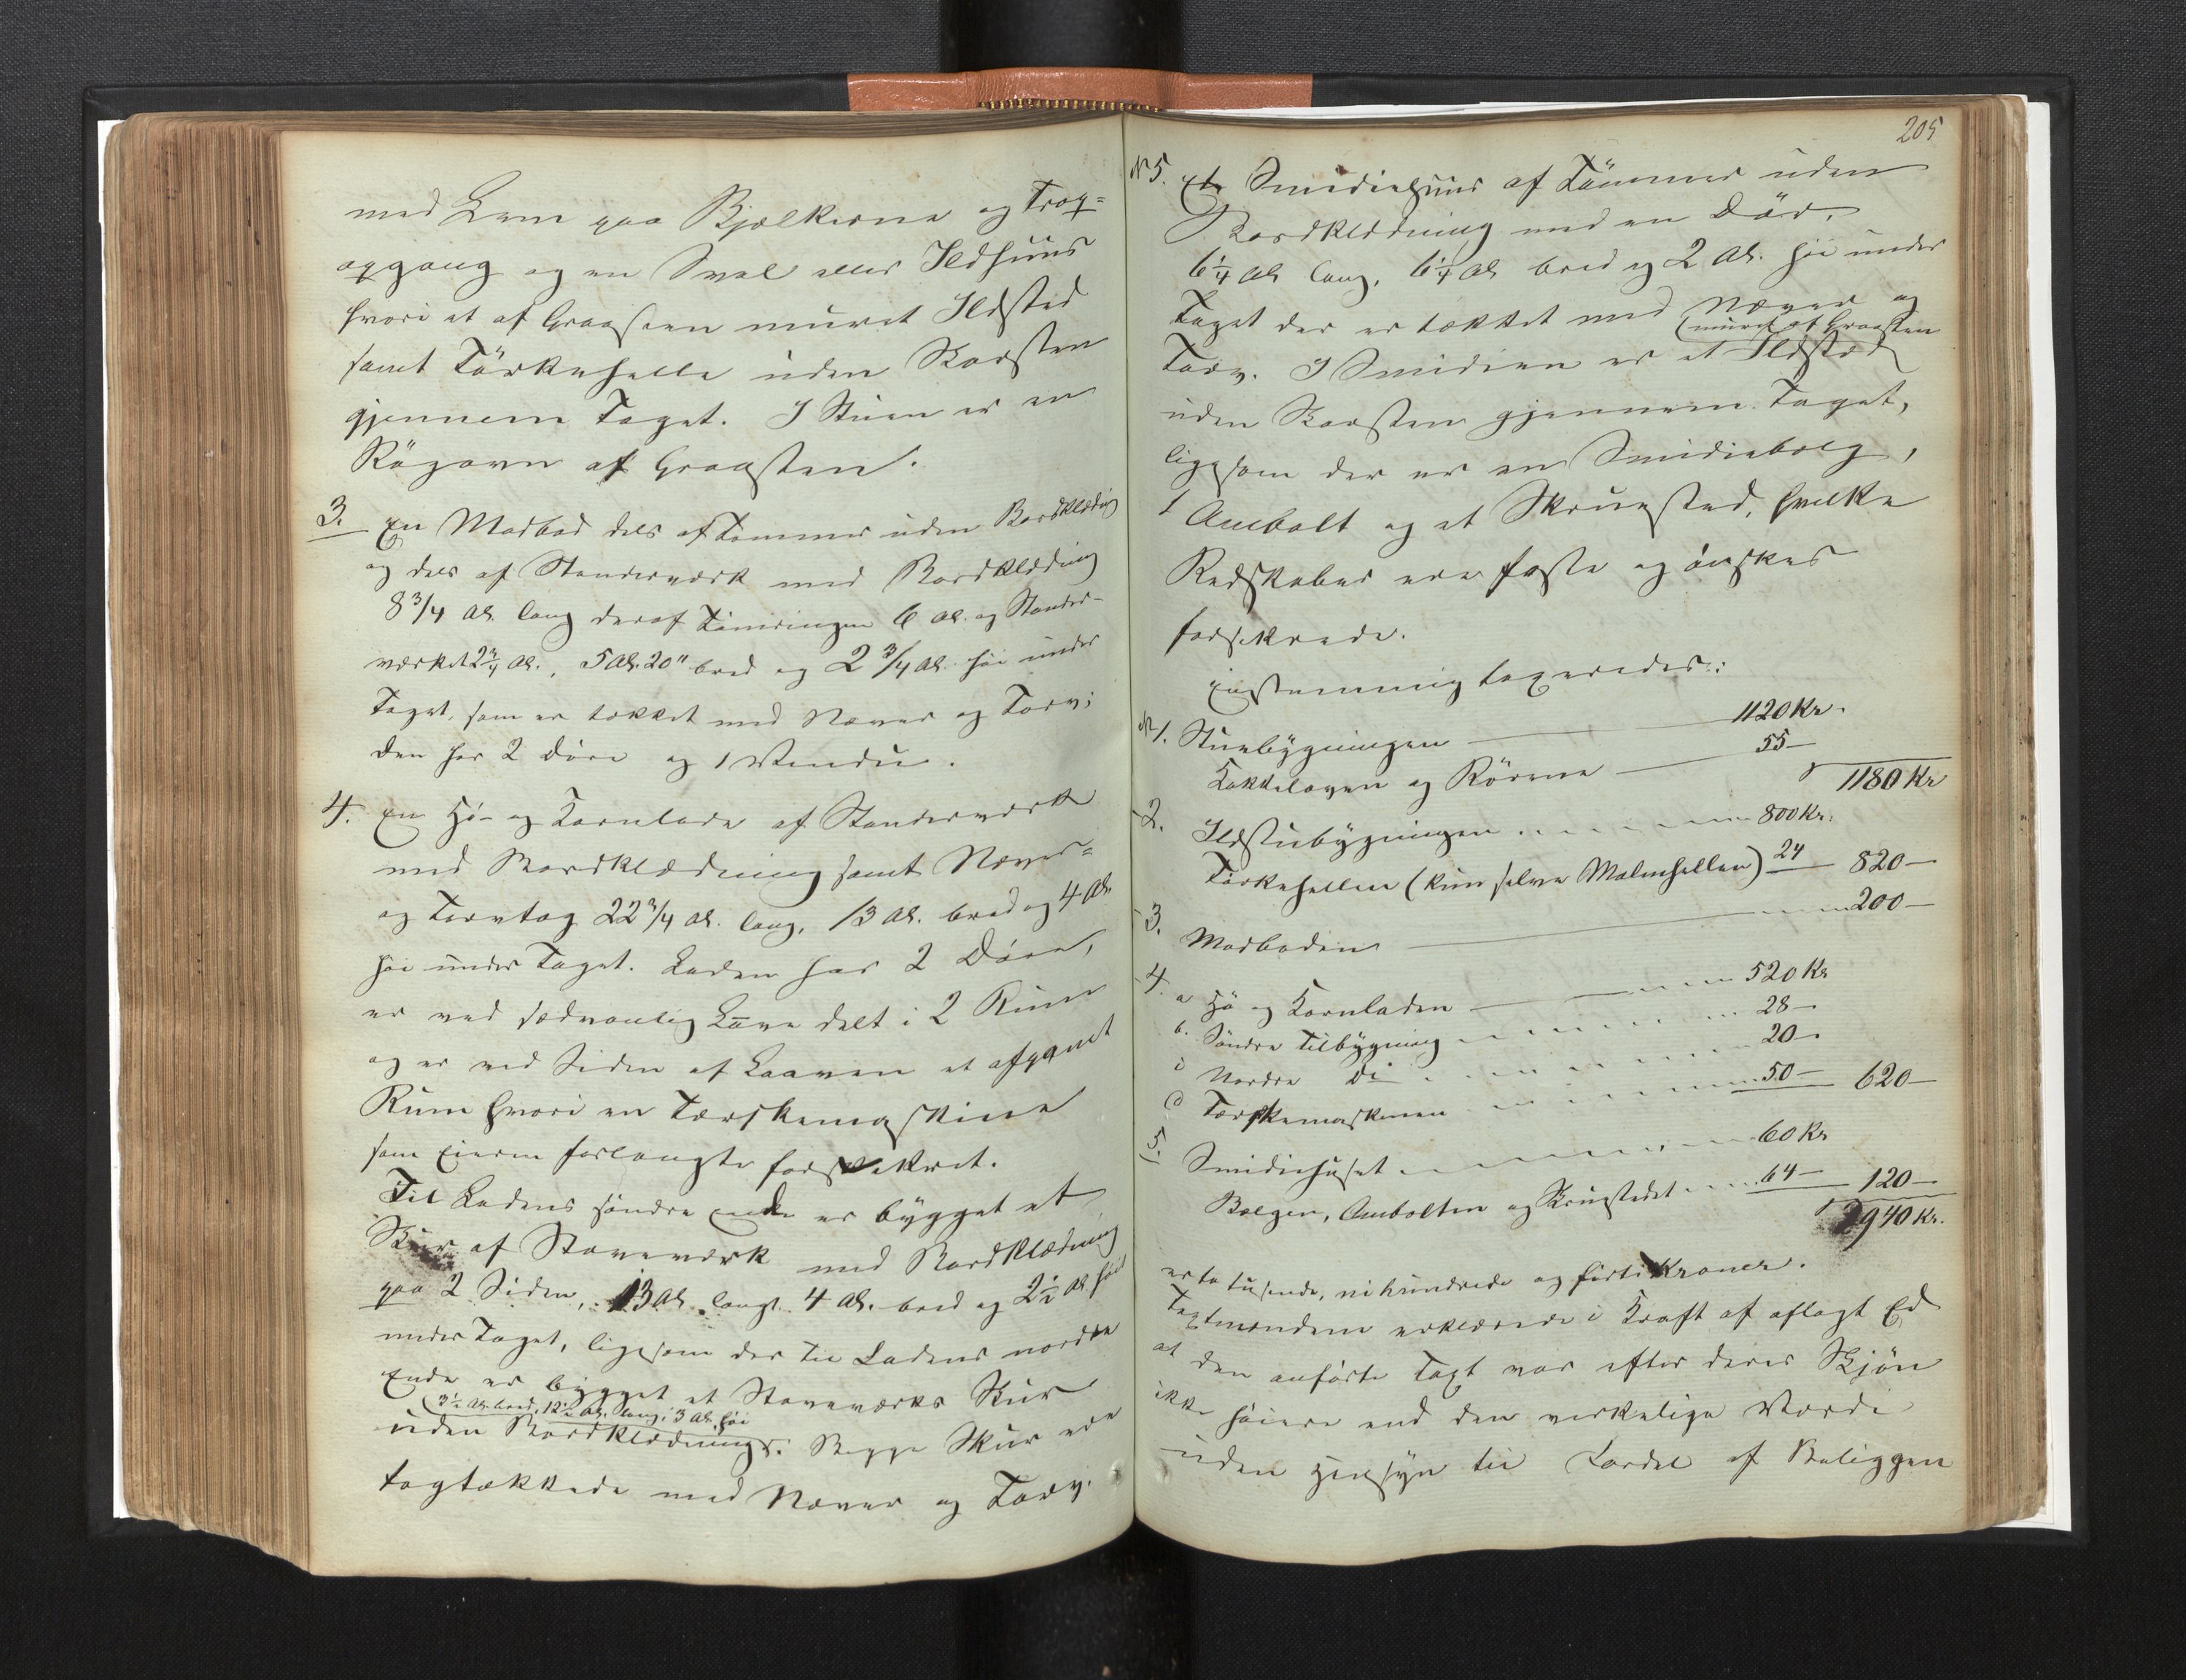 med Lem paa Bjelkerne og Trap=
opgang og en Sval eller Ildhuus
hvori et af Graasteen muret Ildsted
samt Törkehelle uden Skorsten
gjennem Taget. I Stuen er en
Rögovn af Graasten.
3. En Madbod dels af Tømmer uden Bordklædnig
og dels af Standerværk med Bordklædning
8 3/4 Al. lang deraf Tømringen 6 Al. og Stander-
værket 2 3/4 Al., 5 Al. 20" bred og 2 3/4 Al. høi under
Taget, som er tækket med Næver og Torv;
den har 2 Döre og 1 Vendu.
4. En Hö- og Kornlade af Standerværk
med Bordklædning samt Næver=
og Torvtag 22 3/4 Al. lang, 13 Al. bred og 4 Al.
høi under Taget. Laden har 2 Döre,
er ved sædvanlig Lave delt i 2 Rum
og er ved Siden af Laaven et afpanet
Rum hvori en Tærskemaskine
som Eieren forlangte forsikret.
Til Ladens søndre Ende er bygget et
Skur af Staveværk med Bordklædning
paa 2 Sider, 13 Al. langt 4 Al. bred og 2 1/2 Al høit
under Taget, ligesom der til Ladens nordre
Ende er bygget et Staveværks Skur
(3 1/2 Al. bred, 12 1/2 Al. lang, 3 Al. høi
uden Bordklædning. Begge Skur ere
tagtækkede med Næver og Torv.
205
N 5. Et Smediehuus af Tömmer uden
Bordklædning med en Dör,
6 1/4 Al lang, 6 1/4 Al bred og 2 Al. høi under
Taget der er tækket med Næver og
(muret af Graasten
Torv. I Smidien er et Ildsted
uden Skorsten gjennem Taget,
ligesom der er en Smidiebælg,
1 Ambolt og et Skruested, hvilke
Redskaber ere faste og ønskes
forsikrede.
Enstemmig taxeredes:
N 1. Stuebygningen 1120 Kr.
Kakkelovnen og Rörene 55 —
1180 Kr
- 2. Ildstubygningen 800 Kr.
Törkehellen (kun selve Malmhellen) 24 — 820 —
- 3. Madboden 200 —
- 4. a Hö og Kornladen 520 Kr
b. Söndre Tilbygning 28 —
c Nordre Do 20 —
d Tærskemaskinen 50 — 620 —
5. Smidiehuset 60 Kr
Bælgen, Ambolten og Skruestedet 64 — 120 —
2940 Kr.
er to tusende, nihundrede ogförti Kroner.
Taxtmændene erklærede i Kraft af aflagt Ed
at den anførte Taxt var efter deres Skjön
ikke høiere end den virkelige Værdi
uden Hensyn til Fordel af Beliggen